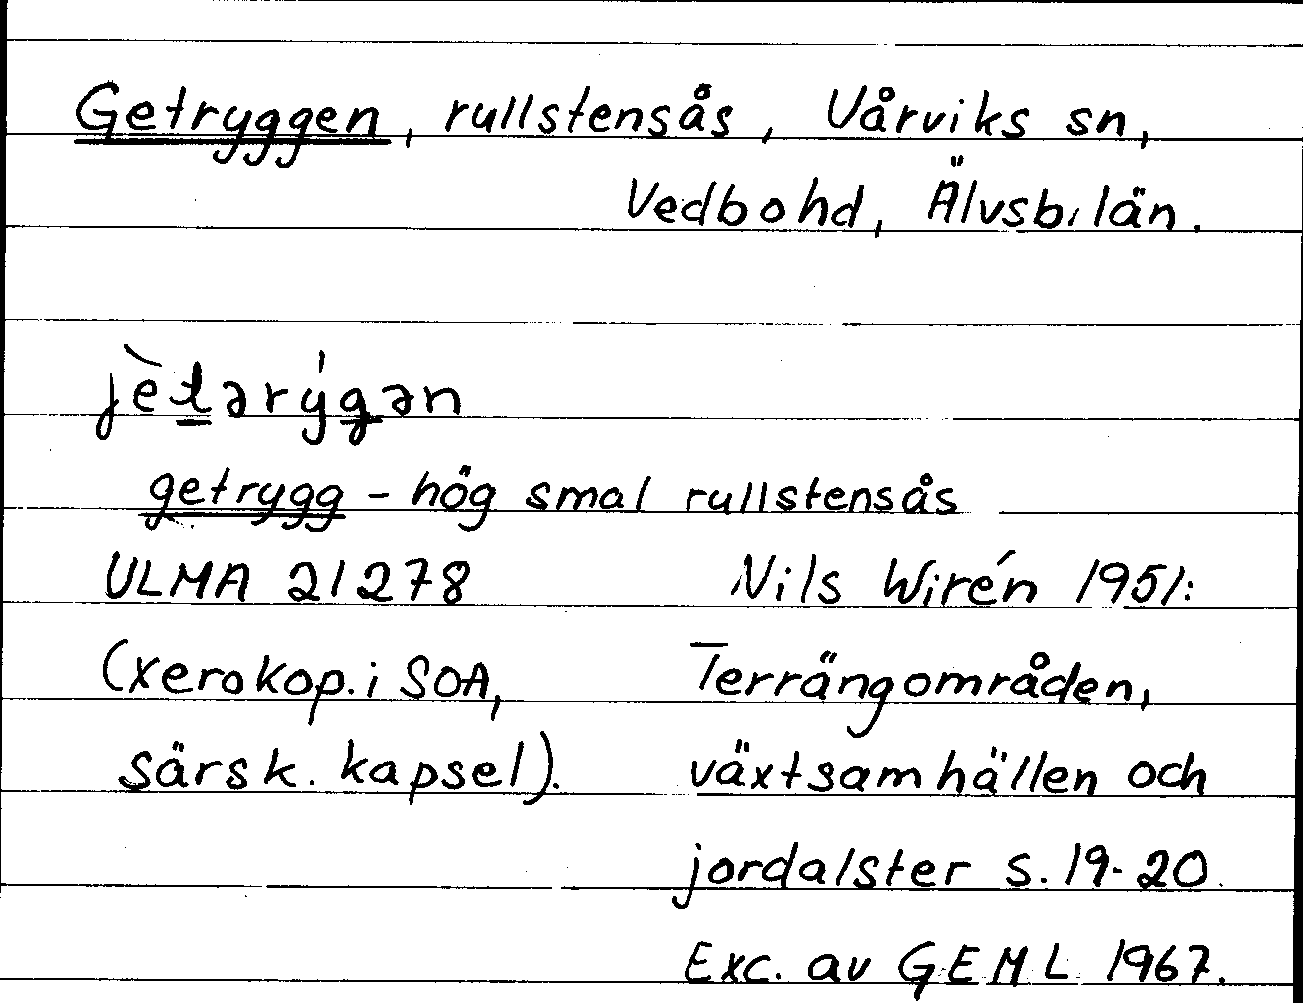 Getryggen, rullstensås, Vårviks sn,
Vedbohd, Älvsb. län.
jètərýgən
getrygg - hög smal rullstensås
ULMA 21278 Nils Wirén 1951:
(Xerokop. i SOA, Terrängområden,
särsk. kapsel). växtsamhällen och
jordalster s. 19-20.
Exc. av GEML 1967.